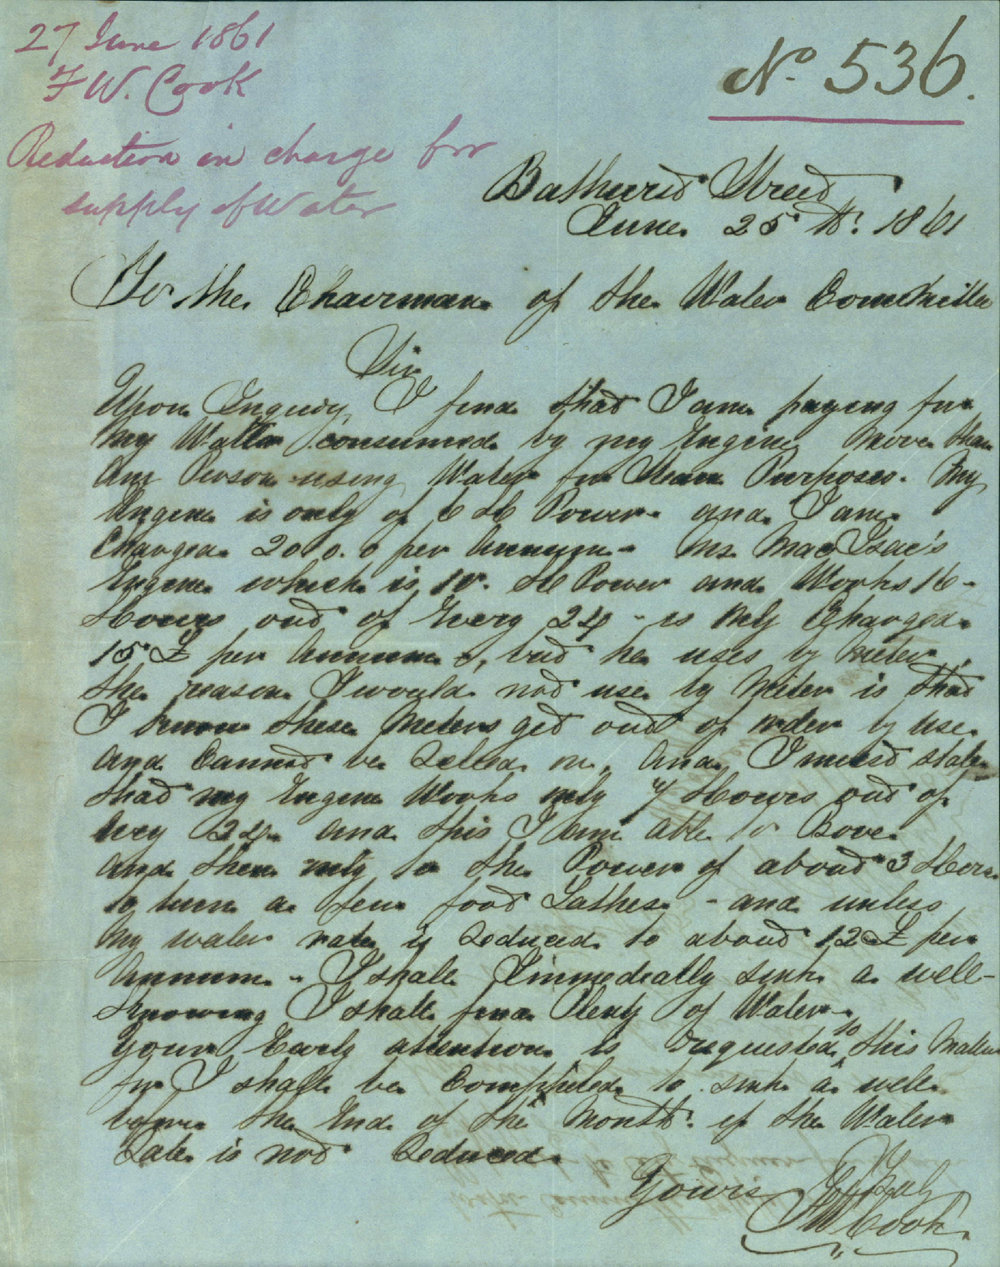 27 June 1861
F W. Cook
Reduction in charge for
supply of Water
No. 536.
Bathurst Street
June 25th. 1861
To the Chairman of the Water Committee
Sir
Upon Inquiry I find that I am paying for
My Water consumed by my Engine More than
any Person using Water for Steam Purposes. My
Engine is only of 6 H Power and I am
Charged 20.0.0 per Annum - Mr. MacIsac's
Engine which is 10. H Power and Works 16 -
Hours out of Every 24 - is only Charged
15 £ per Annum, but he uses by Meter,
the reason I would not use by Meter is that
I know these Meters get out of order by use
and Cannot be Relied on, And I must state
that my Engine Works only 7 Hours out of
evry 24. and this I am able to Prove
and then only to the Power of about 3 Horse
to turn a few foot Lathes - and unless
My water rate is Reduced to about 12 £ per
Annum - I shall Immediatly sink a well -
Knowing I shall find Plenty of Water.
Your Early attention is requested to this Matter
for I shall be Compelled to sink a well
before the End of the Month. if the Water
Rate is not Reduced.
Yours
F W Cook